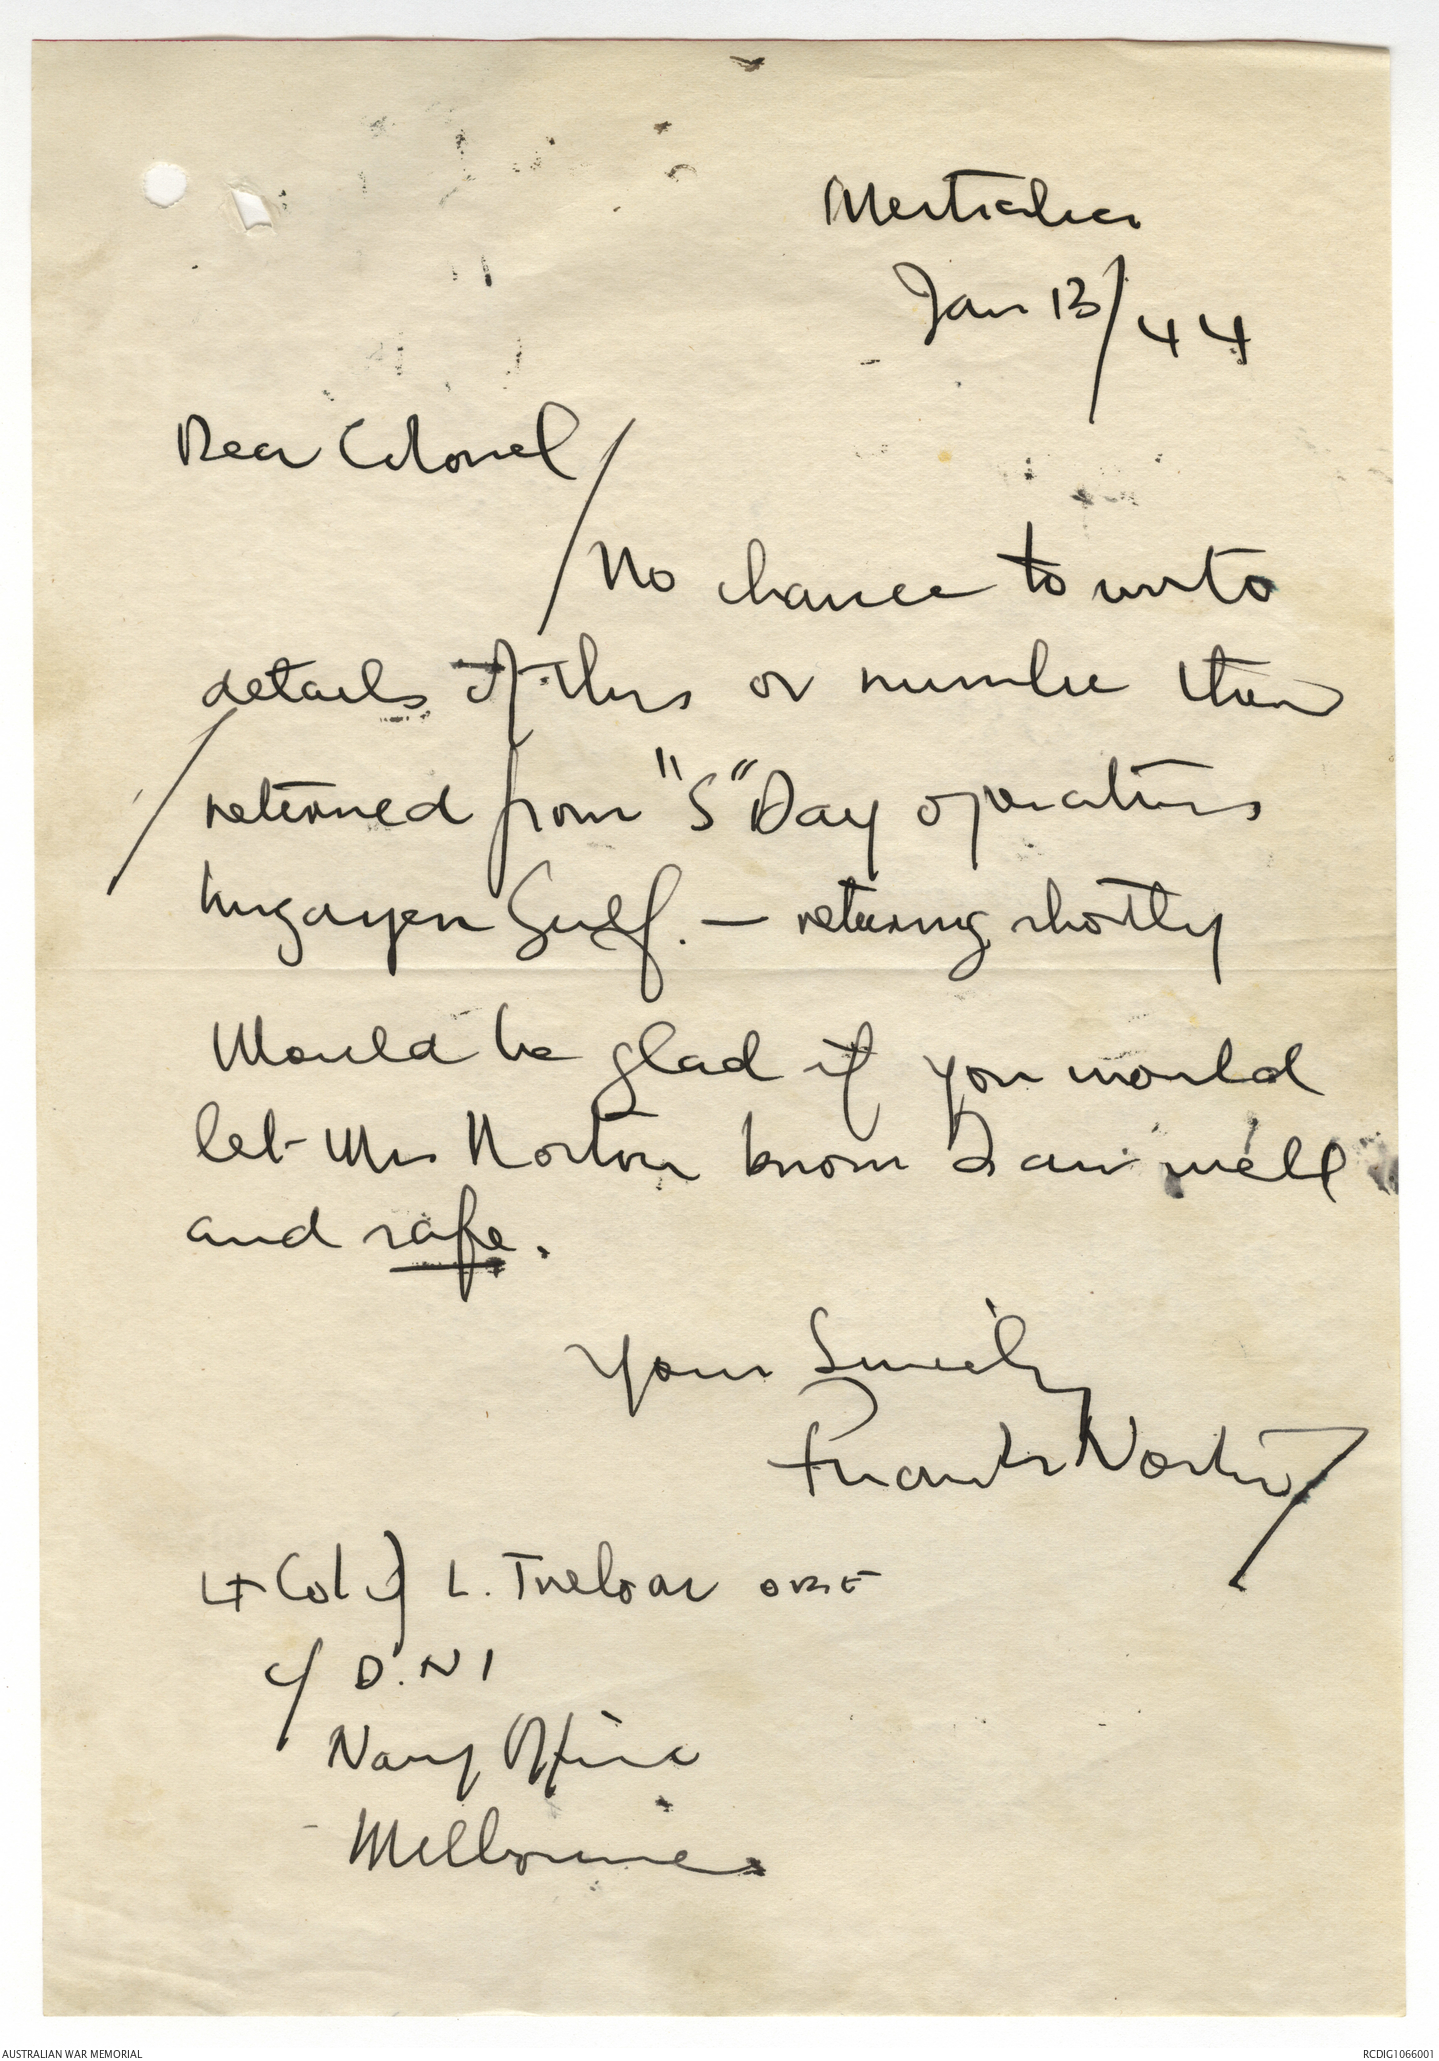 Westralia
Jan 13/44
Dear Colonel/
No chance to write
details of this or number than
returned from "S" Day operations
Lingayen Gulf. — returning shortly
Would be glad if you would
let Mrs Norton know I am well
and safe.
Yours Sincerely
Frank Norton
Lt Col J L. Treloar OBE
c/ D.N I
Navy Office
Melbourne
AUSTRALIAN WAR MEMORIAL
RCDIG1066001